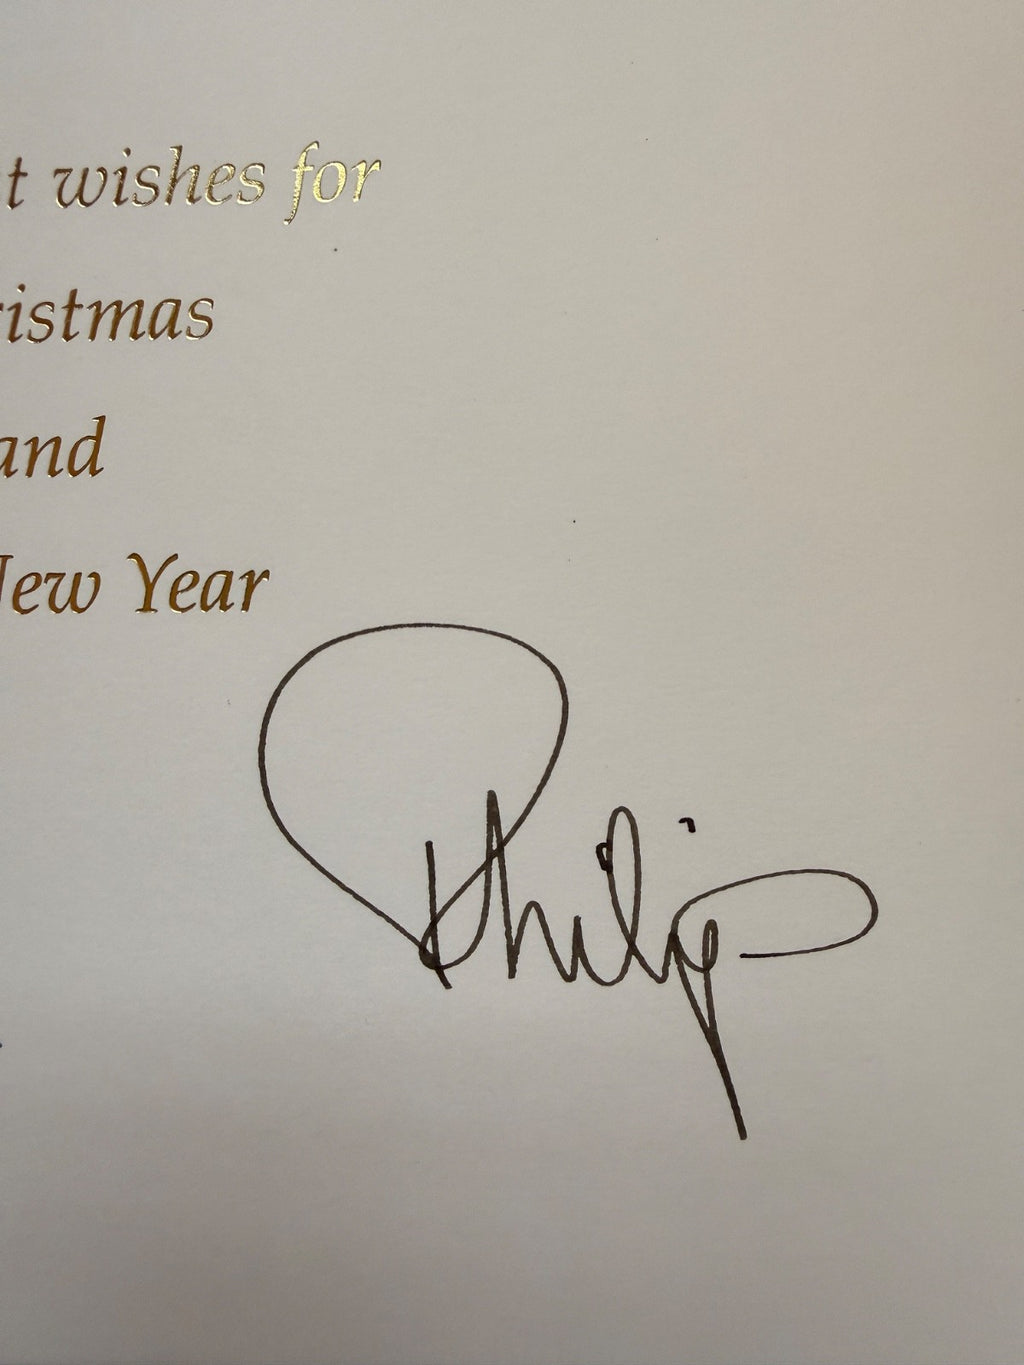 t wishes for
ristmas
and
New Year
Philip